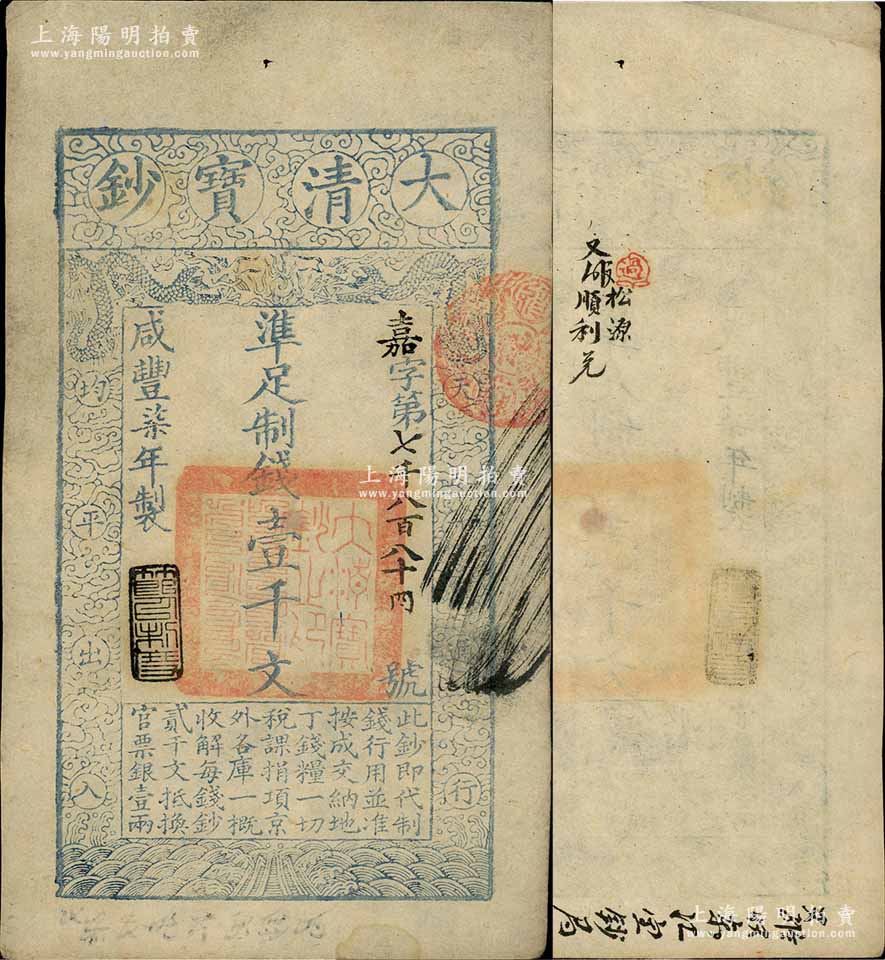 上海陽明拍賣
www.yangmingauction.com
大清寶鈔
天下通行
均平出入
嘉字第七千八百八十四號
準足制錢壹千文
咸豐柒年製
大清寶鈔之印
此鈔即代制
錢行用並准
按成交納地
丁錢糧一切
稅課捐項京
外各庫一概
收解每錢鈔
貳千文抵換
官票銀壹兩
上海陽明拍賣
www.yangmingauction.com
過
松源
順利兑
上海陽明拍賣
www.yangmingauction.com